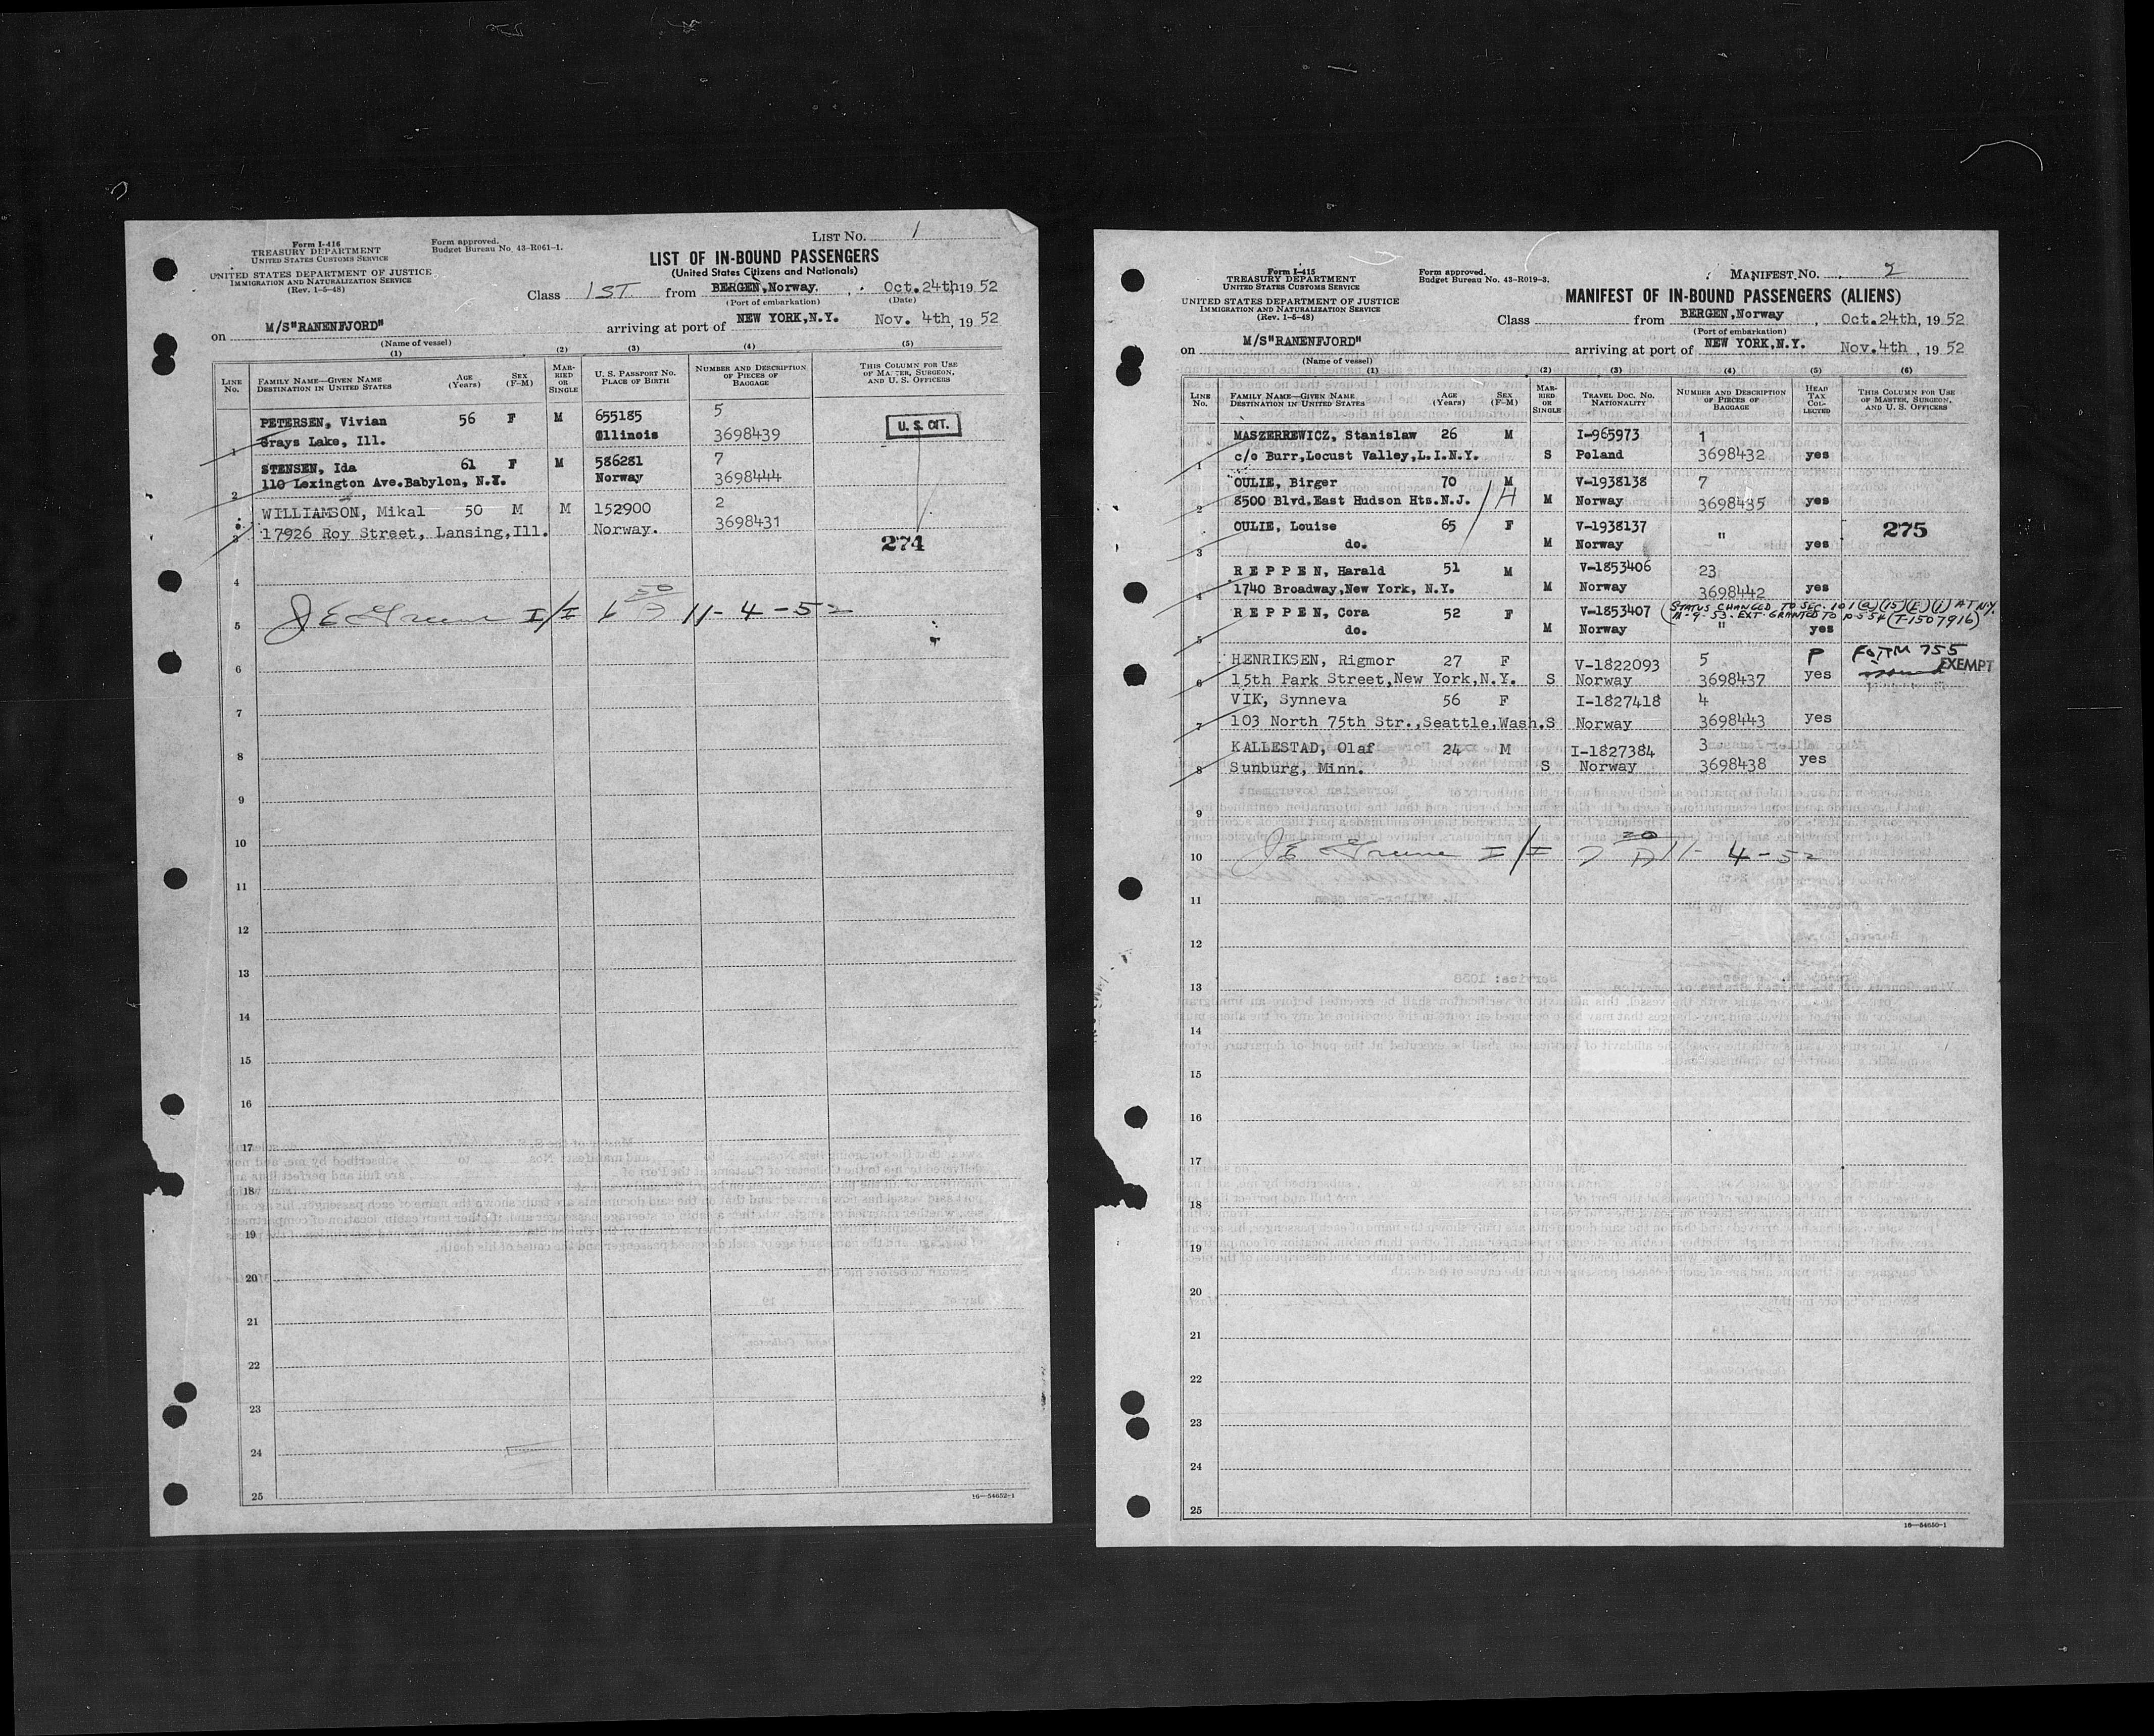 Form I-416
TREASURY DEPARTMENT
UNITED STATES CUSTOMS SERVICE
UNITED STATES DEPARTMENT OF JUSTICE
IMMIGRATION AND NATURALIZATION SERVICE
(Rev. 1-5-48)
Form approved.
Budget Bureau No. 43-R061-1.
LIST NO. 1
LIST OF IN-BOUND PASSENGERS
(United States Citizens and Nationals)
Class 1ST from BERGEN,Norway. Oct.24th 1952
(Port of embarkation) (Date)
on M/S"RANENFJORD" arriving at port of NEW YORK,N.Y. Nov. 4th, 1952
(Name of vessel)
(1) (2) (3) (4) (5)
LINE No. FAMILY NAME—GIVEN NAME DESTINATION IN UNITED STATES AGE (Years) SEX (F-M) MARRIED OR SINGLE U. S. PASSPORT NO. PLACE OF BIRTH NUMBER AND DESCRIPTION OF PIECES OF BAGGAGE THIS COLUMN FOR USE OF MASTER, SURGEON, AND U. S. OFFICERS
PETERSEN, Vivian 56 F M 655185 5 U. S. CIT.
1 Grays Lake, Ill. Illinois 3698439
STENSEN, Ida 61 F M 586281 7
2 110 Lexington Ave.Babylon, N.Y. Norway 3698444
WILLIAMSON, Mikal 50 M M 152900 2
3 17926 Roy Street, Lansing,Ill. Norway. 3698431
274
4
5 11-4-52
6
7
8
9
10
11
12
13
14
15
16
17
18
19
20
21
22
23
24
25
16—54652-1
Form I-415
TREASURY DEPARTMENT
UNITED STATES CUSTOMS SERVICE
UNITED STATES DEPARTMENT OF JUSTICE
IMMIGRATION AND NATURALIZATION SERVICE
(Rev. 1-5-48)
Form approved.
Budget Bureau No. 43-R019-3.
MANIFEST NO. 2
MANIFEST OF IN-BOUND PASSENGERS (ALIENS)
Class from BERGEN,Norway, Oct.24th, 1952
(Port of embarkation)
on M/S"RANENFJORD" arriving at port of NEW YORK,N.Y. Nov.4th, 1952
(Name of vessel)
(1) (2) (3) (4) (5) (6)
LINE No. FAMILY NAME—GIVEN NAME DESTINATION IN UNITED STATES AGE (Years) SEX (F-M) MARRIED OR SINGLE TRAVEL DOC. NO. NATIONALITY NUMBER AND DESCRIPTION OF PIECES OF BAGGAGE HEAD TAX COLLECTED THIS COLUMN FOR USE OF MASTER, SURGEON, AND U. S. OFFICERS
MASZERREWICZ, Stanislaw 26 M I-965973 1
1 c/o Burr,Locust Valley,L.I.N.Y. S Poland 3698432 yes
OULIE, Birger 70 M V-1938138 7
2 8500 Blvd.East Hudson Hts.N.J. H M Norway 3698435 yes
OULIE, Louise 65 F V-1938137 " 275
3 do. M Norway yes
REPPEN, Harald 51 M V-1853406 23
4 1740 Broadway,New York, N.Y. M Norway 3698442 yes
REPPEN, Cora 52 F V-1853407 (STATUS CHANGED TO SEC. 101(a)(15)(E)(i) AT N.Y.
5 do. M Norway " yes
HENRIKSEN, Rigmor 27 F V-1822093 5 P FORM 755
6 15th Park Street,New York,N.Y. S Norway 3698437 yes EXEMPT
VIK, Synneva 56 F I-1827418 4
7 103 North 75th Str.,Seattle,Wash.S Norway 3698443 yes
KALLESTAD, Olaf 24 M I-1827384 3
8 Sunburg, Minn. S Norway 3698438 yes
9
10 11-4-52
11
12
13
14
15
16
17
18
19
20
21
22
23
24
25
16—54650-1